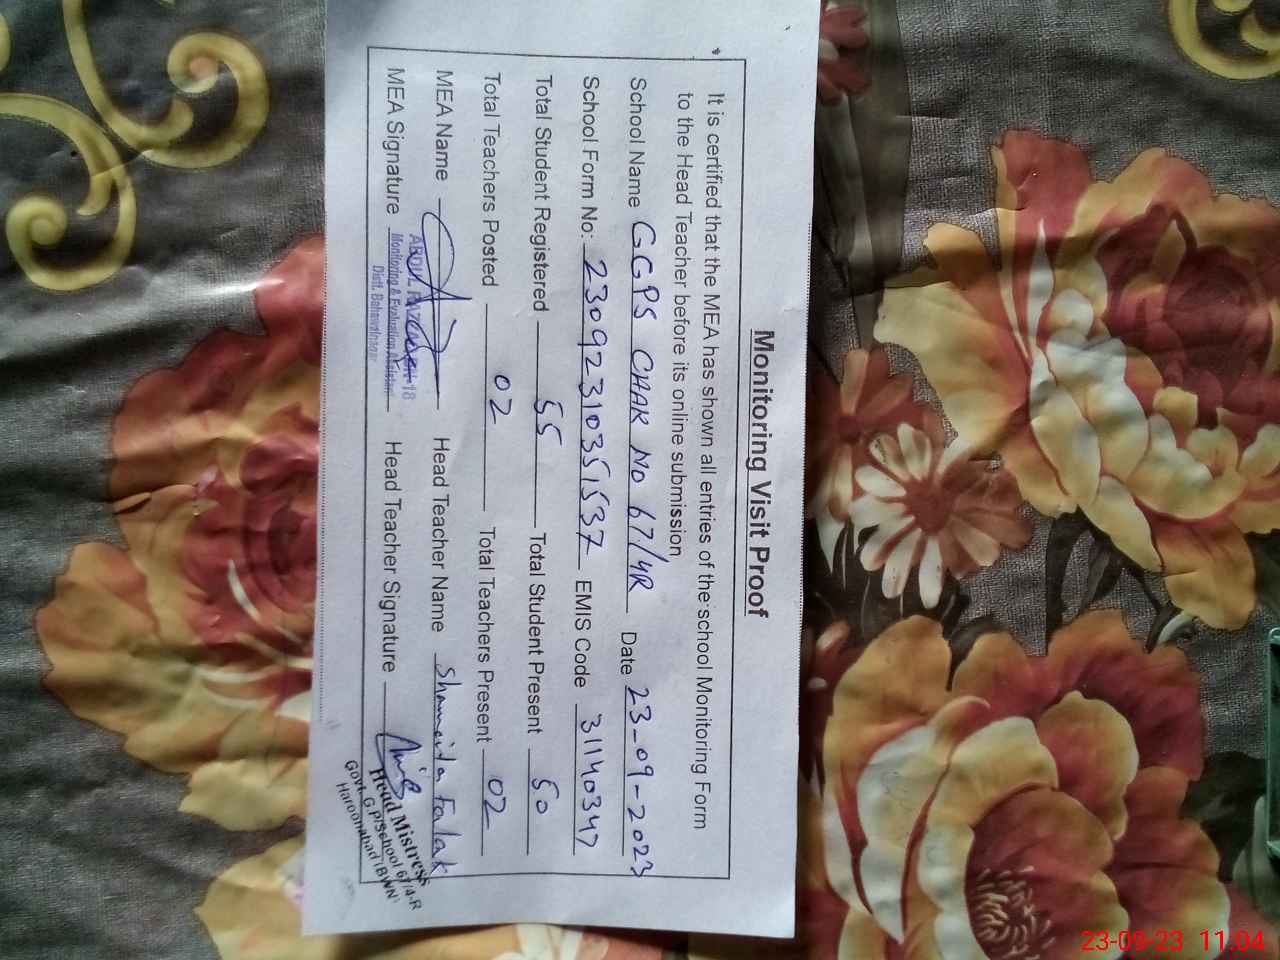 Monitoring Visit Proof
It is certified that the MEA has shown all entries of the school Monitoring Form
to the Head Teacher before its online submission
School Name GGPS CHAK NO 67/4R Date 23-09-2023
School Form No: 23092310351537 EMIS Code 31140347
Total Student Registered 55 Total Student Present 50
Total Teachers Posted 02 Total Teachers Present 02
MEA Name Head Teacher Name Shameida Falak
MEA Signature Head Teacher Signature
ABDUL
Monitoring & Evaluation Assistant
Distt. Bahawalnagar
Head Mistress
Govt. G.P/School 67/4-R
Haroonabad (BWN)
23-09-23 11:04